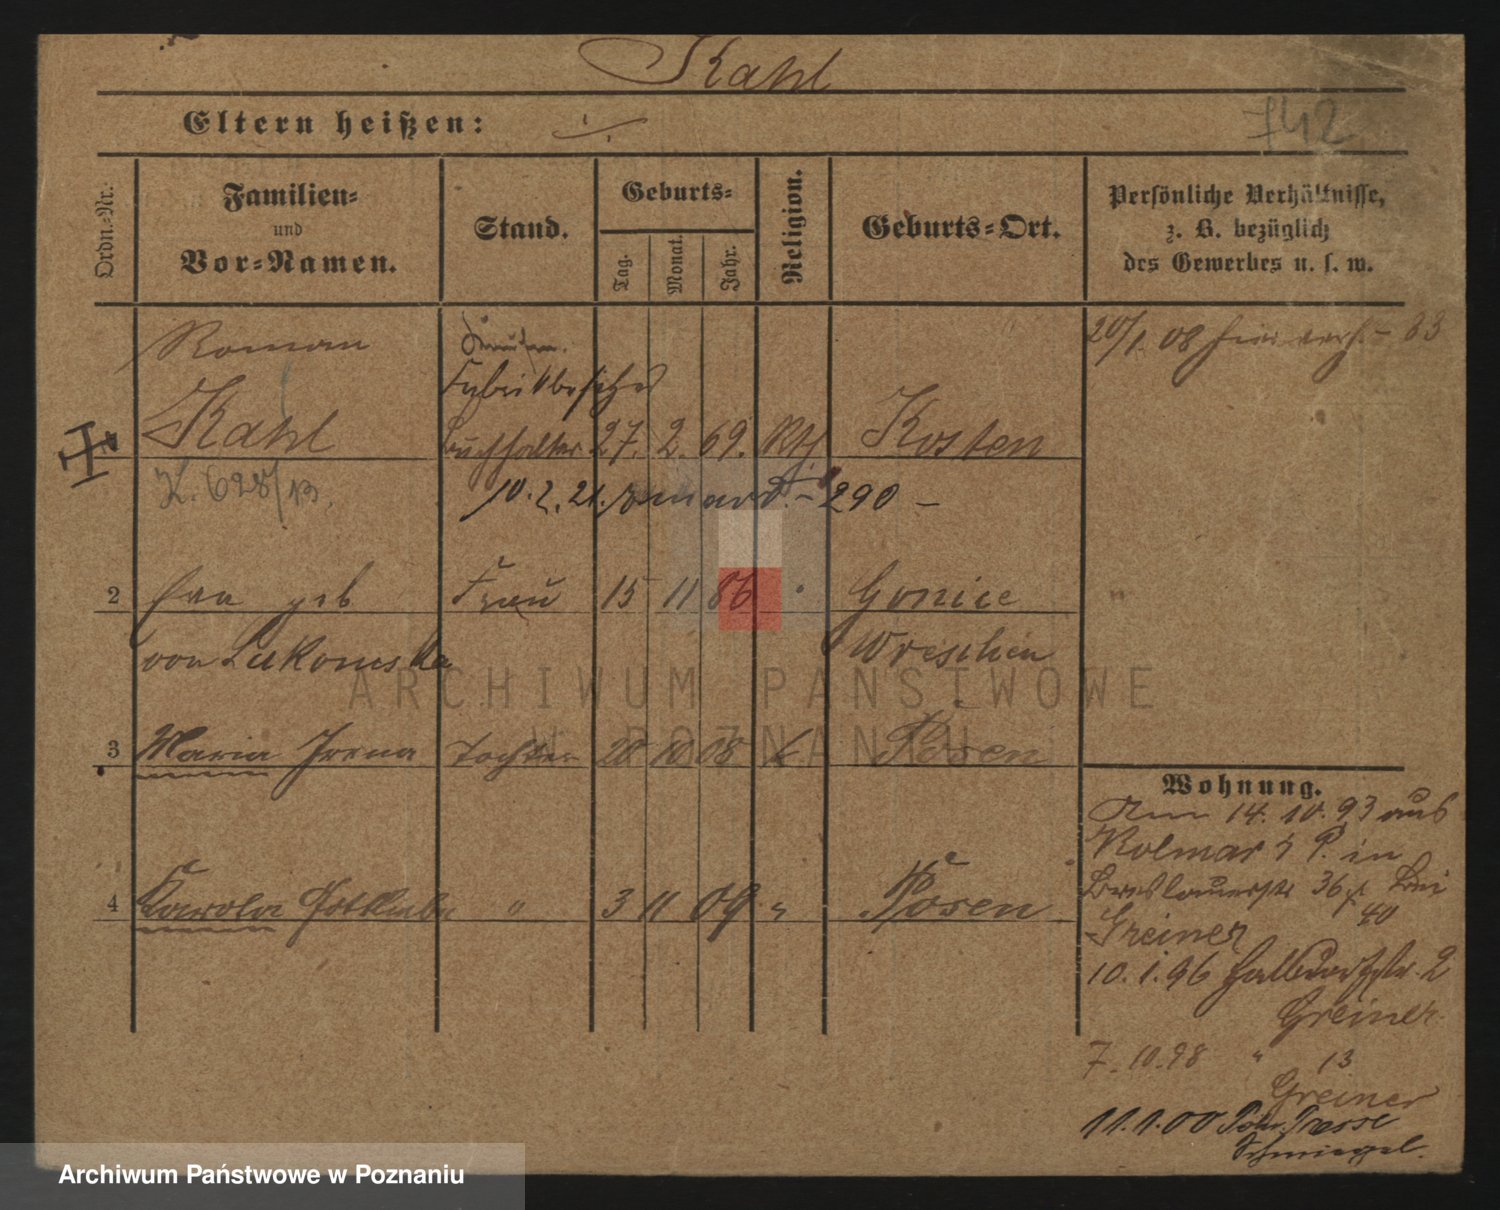 Kahl
Eltern heißen: ./.
742
Ordn.-Nr.
Familien-
und
Vor-Namen.
Stand.
Geburts-
Tag.
Monat.
Jahr.
Religion.
Geburts-Ort.
Persönliche Verhältnisse,
z. B. bezüglich
des Gewerbes u. s. w.
Roman
Fabrikbesitzer
20/1 08 hier verh. - 33
Kahl Buchhalter 27. 2. 69. Kth Kosten
K. 628/13.
10. 2. 21. - 290 -
2 geb Frau 15 11 86 Gonice
von Lukomska Wreschen
3 Maria Irena Tochter 20 10 08 k Posen
Wohnung.
Am 14. 10. 93 aus
Kolmar i P. in
Breslauerstr 36 bei
40
4 Karola " 3 11 09 " Posen
Greiner
10. 1. 96 Halbdorfstr. 2
Greiner
7. 10. 98 " 13
Greiner
11. 1. 00
Schmiegel.
ARCHIWUM PAŃSTWOWE
W POZNANIU
Archiwum Państwowe w Poznaniu